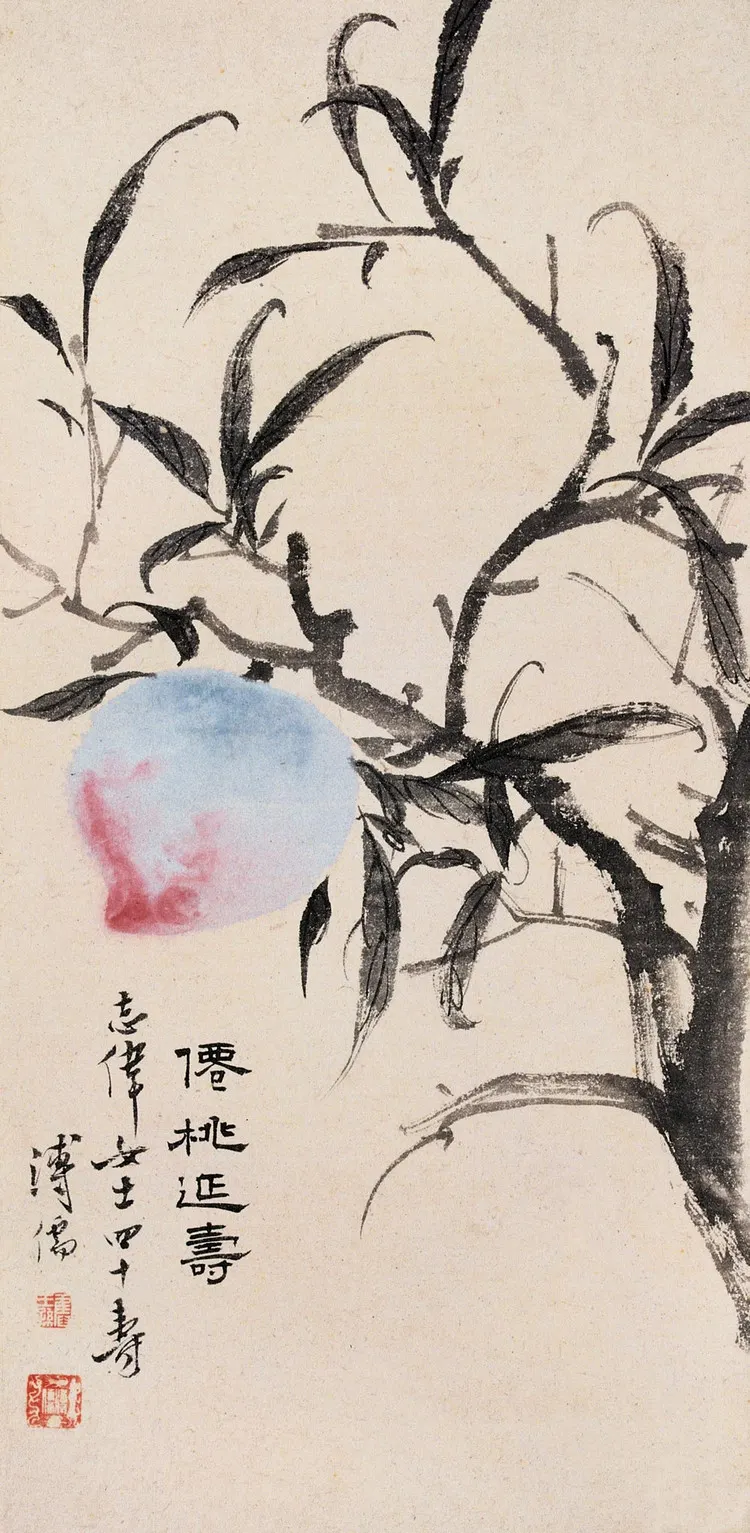 僊桃延壽
志偉女士四十壽
溥儒